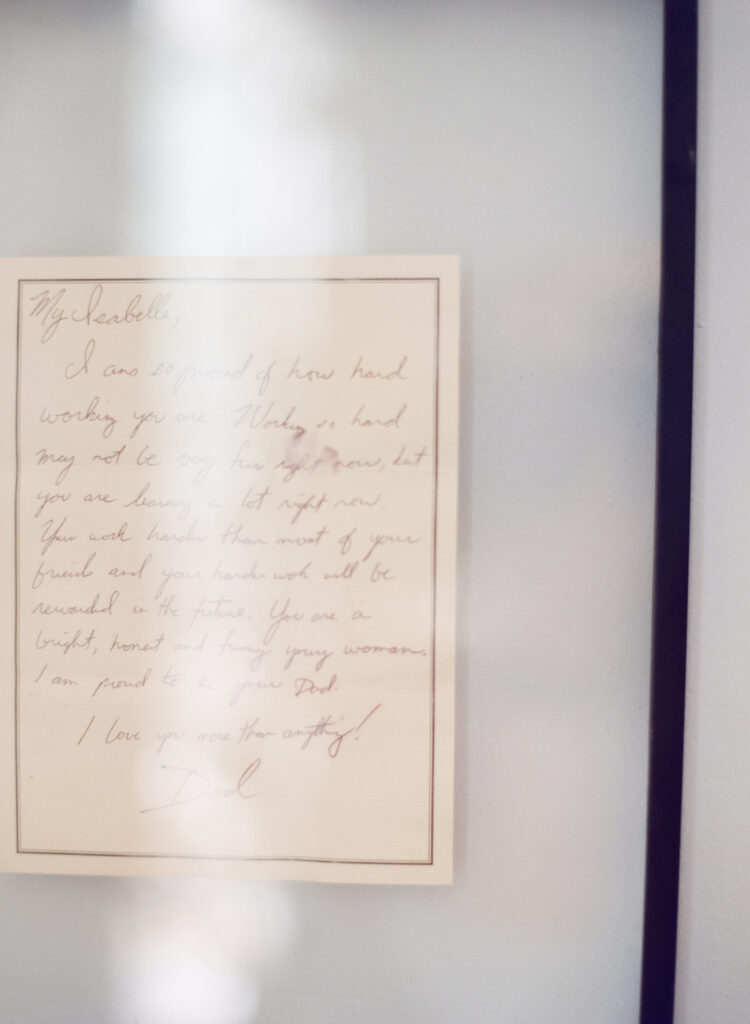 My Isabelle,
I am so proud of how hard
working you are. Working so hard
may not be very fun right now, but
you are learning a lot right now.
You work harder than most of your
friends and your harder work will be
rewarded in the future. You are a
bright, honest and funny young woman.
I am proud to be your Dad.
I love you more than anything!
Dad